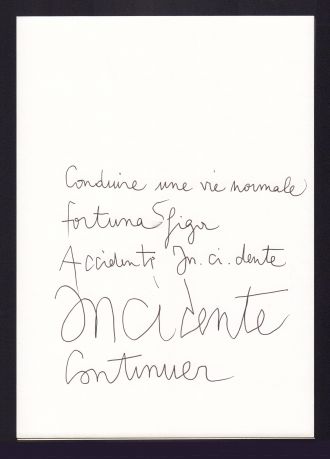 Conduire une vie normale
fortuna Sfiga
Accidenti In.ci.dente
Incidente
Continuer